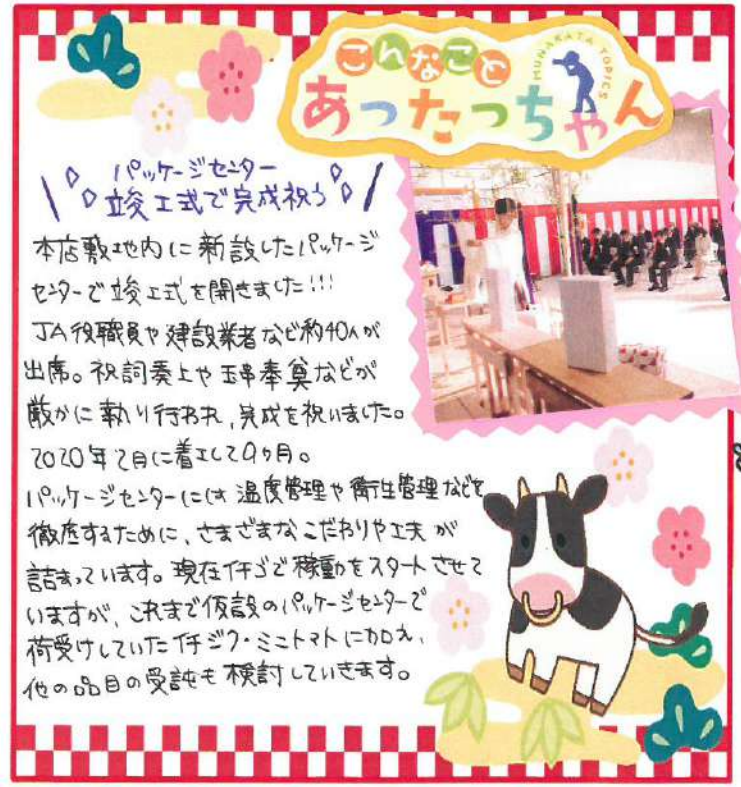 こんなこと
あったっちゃん
MUNAKATA TOPICS
パッケージセンター
竣工式で完成祝う
本店敷地内に新設したパッケージ
センターで竣工式を開きました!!!
JA役職員や建設業者など約40人が
出席。祝詞奏上や玉串奉奠などが
厳かに執り行われ、完成を祝いました。
2020年2月に着工して9ヶ月。
パッケージセンターには温度管理や衛生管理などを
徹底するために、さまざまなこだわりや工夫が
詰まっています。現在イチゴで稼動をスタートさせて
いますが、これまで仮設のパッケージセンターで
荷受けしていたイチジク・ミニトマトに加え、
他の品目の受託も検討していきます。